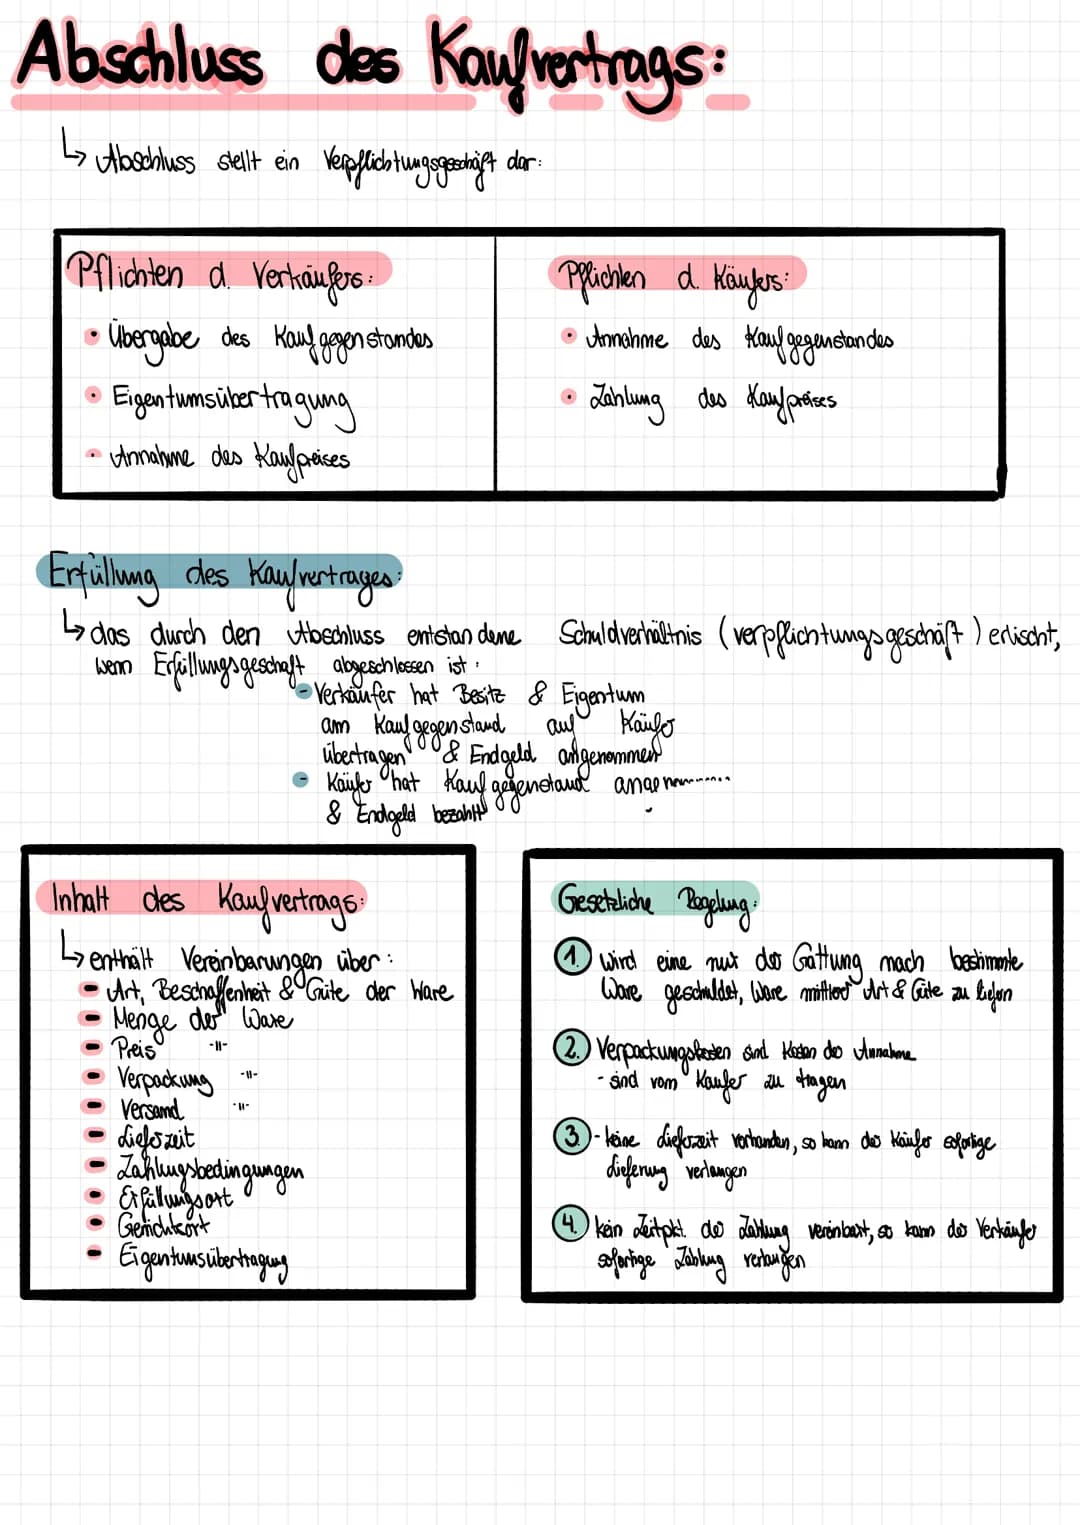 Abschluss des Kaufvertrags:
↳ Abschluss stellt ein Verpflichtungsgeschäft dar:
Pflichten d. Verkäufers:
• Übergabe des Kaufgegenstandes
• Eigentumsübertragung
• Annahme des Kaufpreises
Pflichten d. Käufers:
• Annahme des Kaufgegenstandes
• Zahlung des Kaufpreises
Erfüllung des Kaufvertrages:
↳ das durch den Abschluss entstandene Schuldverhältnis (verpflichtungsgeschäft) erlischt,
wenn Erfüllungsgeschäft abgeschlossen ist:
- Verkäufer hat Besitz & Eigentum
am Kaufgegenstand auf Käufer
übertragen & Endgeld angenommen
- Käufer hat Kaufgegenstand
& Endgeld bezahlt
Inhalt des Kaufvertrags:
↳ enthält Vereinbarungen über:
- Art, Beschaffenheit & Güte der Ware
- Menge der Ware
- Preis -"-
- Verpackung -"-
- Versand -"-
- Lieferzeit
- Zahlugsbedingungen
- Erfüllungsort
- Gerichtsort
- Eigentumsübertragung
Gesetzliche Regelung:
1. Wird eine nur der Gattung nach bestimmte
Ware geschuldet, Ware mittlerer Art & Güte zu liefern
2. Verpackungskosten sind Kosten der Annahme
- sind vom Käufer zu tragen
3. - keine Lieferzeit vorhanden, so kann der Käufer sofortige
Lieferung verlangen
4. kein Zeitpkt. der Zahlung vereinbart, so kann der Verkäufer
sofortige Zahlung verlangen